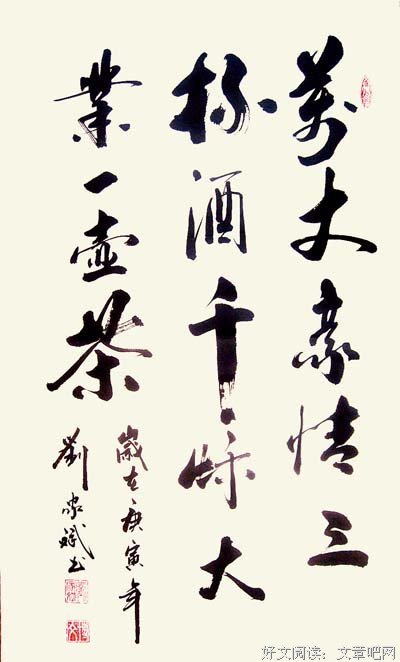 萬丈豪情三
杯酒千秋大
業一壺茶
歲在庚寅年
劉家斌书
好文阅读：文章吧网